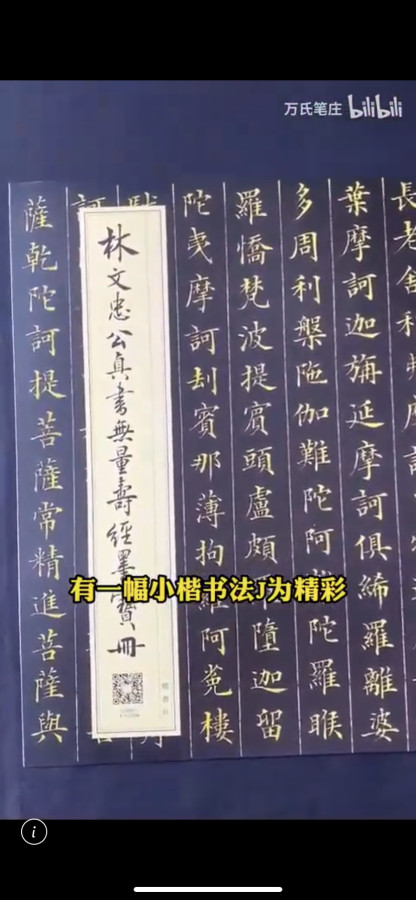 万氏笔庄 bilibili
長老舍利
葉摩訶迦旃延摩訶俱絺羅離婆
多周利槃陁伽難陀阿陀羅睺
羅憍梵波提賓頭盧頗墮迦留
陀夷摩訶刧賓那薄拘羅阿㝹樓
林文忠公真書無量壽經墨寶冊
薩乾陀訶提菩薩常精進菩薩與
有一幅小楷书法J为精彩